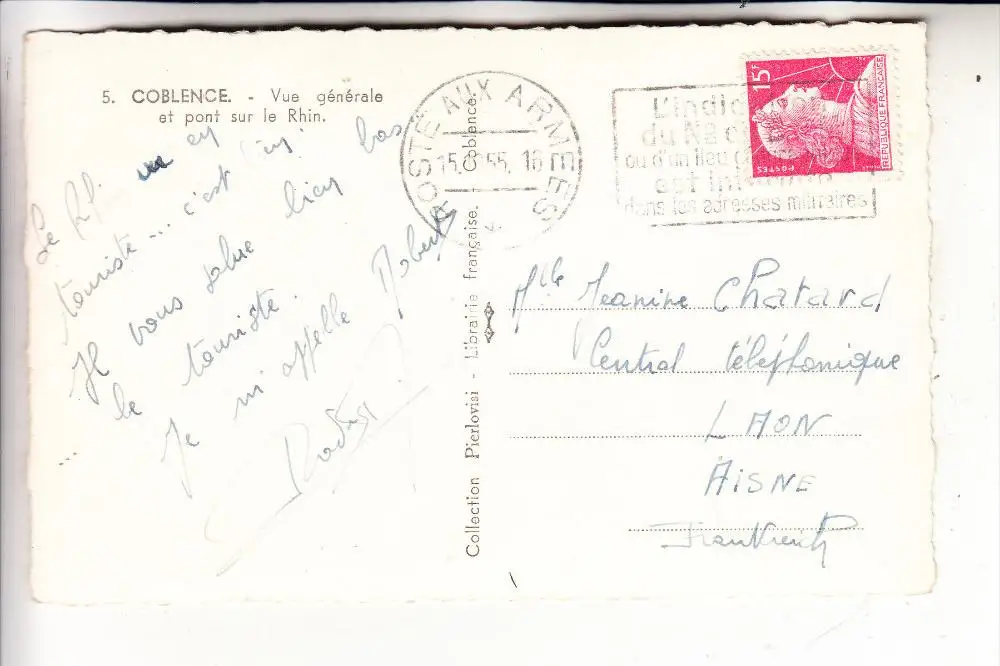 5. COBLENCE. - Vue générale
et pont sur le Rhin.
Le en
touriste... c'est ici bas
Je vous salue bien
le touriste.
... Je m'appelle Robert
POSTE AUX ARMÉES
15. 55. 16
L'indic
du No
ou d'un lieu
est in
dans les adresses militaires
15F
REPUBLIQUE FRANÇAISE
POSTES
Collection Pierlovisi - Librairie française. - Coblence.
Mlle Jeanine Chatard
Central téléphonique
LAON
AISNE
Frankreich